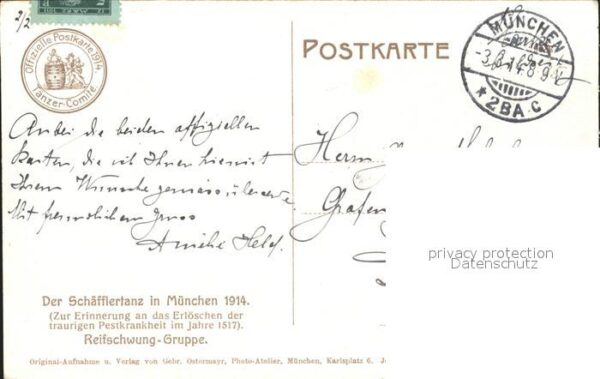 2/2
Offizielle Postkarte 1914
Tänzer-Comité
POSTKARTE
MÜNCHEN
2 BA. C
Anbei die beiden offiziellen
Karten, die ich Ihnen hiermit
Ihrem Wunsche gemäss, übersende.
Mit freundlichem Gruss
Amélie Held.
Herrn
Grafen
privacy protection
Datenschutz
Der Schäfflertanz in München 1914.
(Zur Erinnerung an das Erlöschen der
traurigen Pestkrankheit im Jahre 1517).
Reifschwung-Gruppe.
Original-Aufnahme u. Verlag von Gebr. Ostermayr, Photo-Atelier, München, Karlsplatz 6.